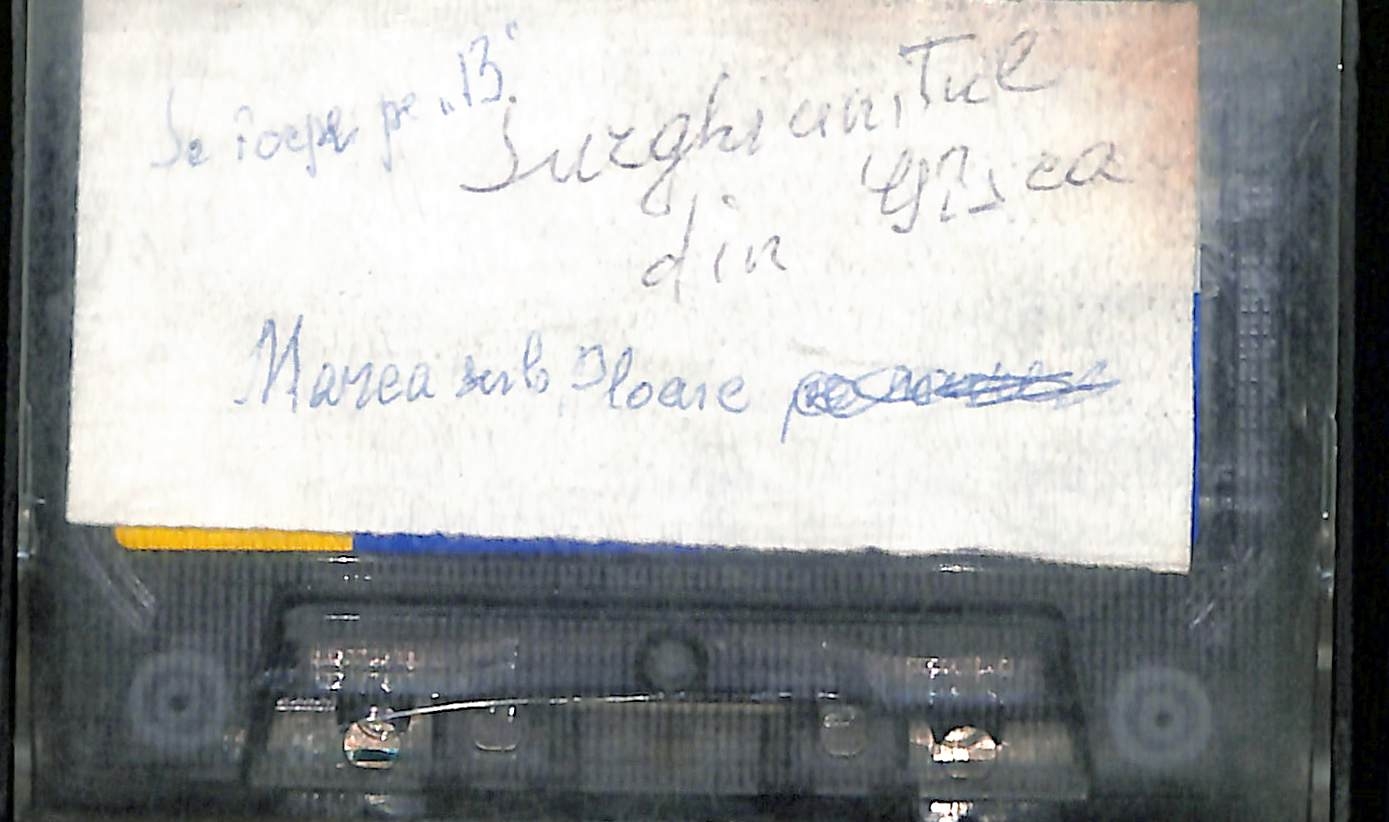 Se începe pe „B“
Surghiunitul
din
Marea sub Ploaie